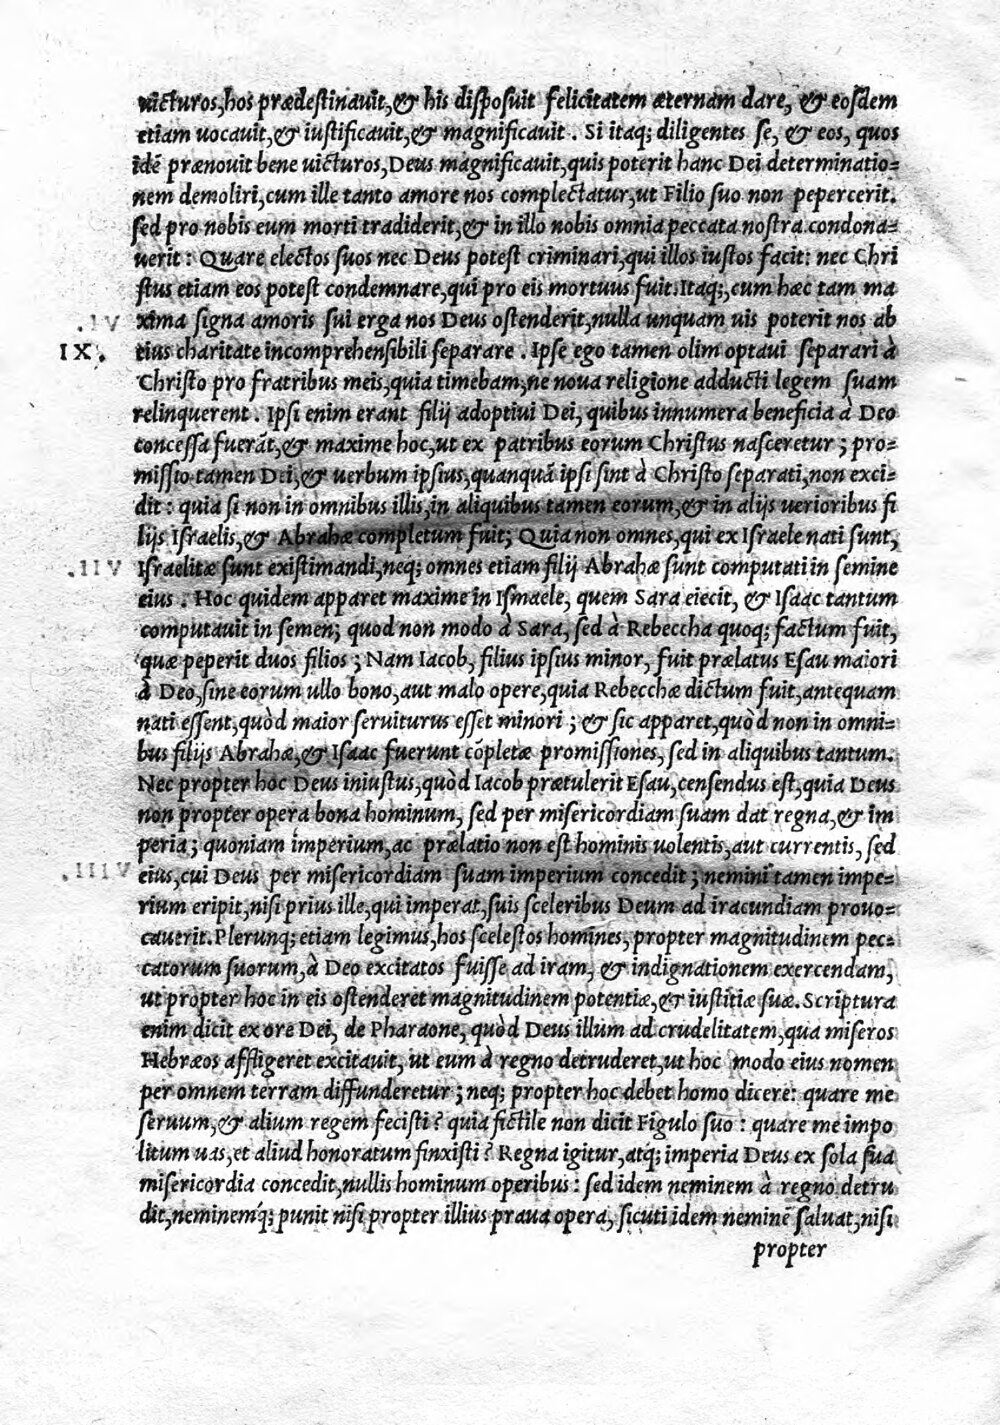 uicturos,hos prædestinauit,& his disposuit felicitatem æternam dare, & eosdem
etiam uocauit,& iustificauit,& magnificauit. Si itaq; diligentes se, & eos, quos
idē prænouit bene uicturos,Deus magnificauit,quis poterit hanc Dei determinatio=
nem demoliri,cum ille tanto amore nos complectatur,ut Filio suo non pepercerit.
sed pro nobis eum morti tradiderit,& in illo nobis omnia peccata nostra condona=
uerit: Quare electos suos nec Deus potest criminari,qui illos iustos facit: nec Chri
stus etiam eos potest condemnare,qui pro eis mortuus fuit.Itaq;,cum hæc tam ma
xima signa amoris sui erga nos Deus ostenderit,nulla unquam uis poterit nos ab
IX. eius charitate incomprehensibili separare. Ipse ego tamen olim optaui separari à
Christo pro fratribus meis,quia timebam,ne noua religione adducti legem suam
relinquerent. Ipsi enim erant filij adoptiui Dei, quibus innumera beneficia à Deo
concessa fuerāt,& maxime hoc,ut ex patribus eorum Christus nasceretur; pro=
missio tamen Dei,& uerbum ipsius,quanquā ipsi sint à Christo separati,non exci=
dit: quia si non in omnibus illis,in aliquibus tamen eorum,& in alijs uerioribus fi
lijs Israelis,& Abrahæ completum fuit; Quia non omnes,qui ex Israele nati sunt,
Israelitæ sunt existimandi,neq; omnes etiam filij Abrahæ sunt computati in semine
eius. Hoc quidem apparet maxime in Ismaele, quem Sara eiecit, & Isaac tantum
computauit in semen; quod non modo à Sara, sed à Rebeccha quoq; factum fuit,
quæ peperit duos filios; Nam Iacob, filius ipsius minor, fuit prælatus Esau maiori
à Deo,sine eorum ullo bono,aut malo opere,quia Rebecchæ dictum fuit,antequam
nati essent,quòd maior seruiturus esset minori; & sic apparet,quòd non in omni=
bus filijs Abrahæ,& Isaac fuerunt cōpletæ promissiones, sed in aliquibus tantum.
Nec propter hoc Deus iniustus,quòd Iacob prætulerit Esau,censendus est,quia Deus
non propter opera bona hominum, sed per misericordiam suam dat regna,& im
peria; quoniam imperium,ac prælatio non est hominis uolentis,aut currentis, sed
eius,cui Deus per misericordiam suam imperium concedit; nemini tamen impe=
rium eripit,nisi prius ille,qui imperat,suis sceleribus Deum ad iracundiam prouo=
cauerit.Plerunq; etiam legimus,hos scelestos homines, propter magnitudinem pec=
catorum suorum,à Deo excitatos fuisse ad iram, & indignationem exercendam,
ut propter hoc in eis ostenderet magnitudinem potentiæ,& iustitiæ suæ. Scriptura
enim dicit ex ore Dei, de Pharaone, quòd Deus illum ad crudelitatem,qua miseros
Hebræos affligeret excitauit, ut eum à regno detruderet,ut hoc modo eius nomen
per omnem terram diffunderetur; neq; propter hoc debet homo dicere: quare me
seruum,& alium regem fecisti? quia fictile non dicit Figulo suo: quare me impo
litum uas,et aliud honoratum finxisti? Regna igitur,atq; imperia Deus ex sola sua
misericordia concedit,nullis hominum operibus: sed idem neminem à regno detru
dit,neminemq́; punit nisi propter illius praua opera, sicuti idem neminē saluat,nisi
propter